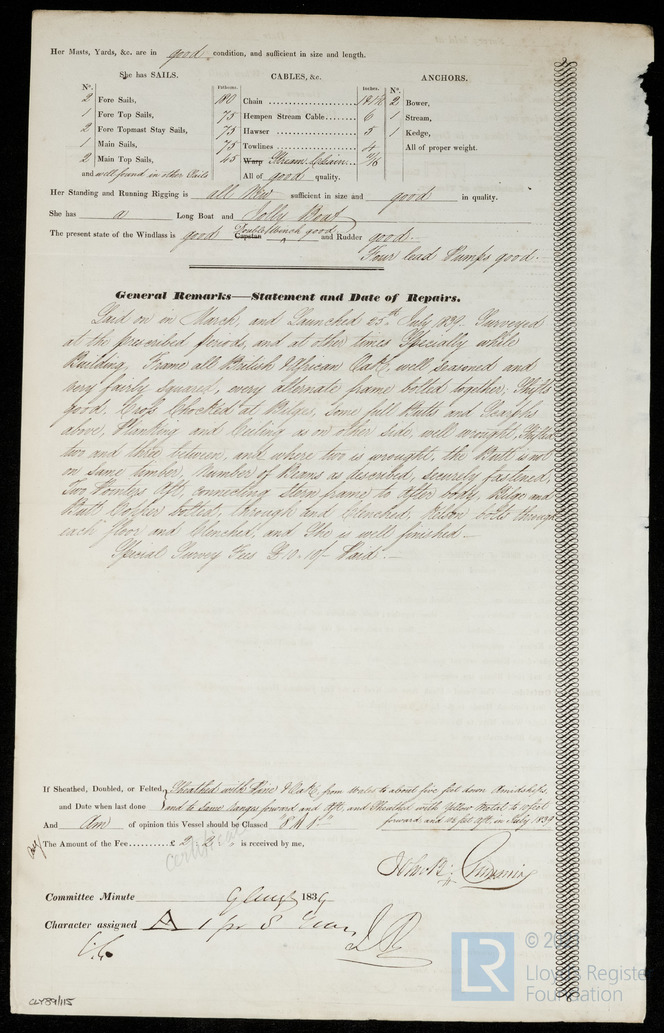 Her Masts, Yards, &c. are in good condition, and sufficient in size and length.
She has SAILS. CABLES, &c. ANCHORS.
N°. Fathoms. Inches. N°.
2 Fore Sails, 180 Chain 2 Bower,
1 Fore Top Sails, 75 Hempen Stream Cable 6 1 Stream,
2 Fore Topmast Stay Sails, 75 Hawser 5 1 Kedge,
1 Main Sails, 75 Towlines 4 All of proper weight.
2 Main Top Sails, 45 Warp Stream Chain
and well found in other Sails All of good quality.
Her Standing and Running Rigging is all New sufficient in size and good in quality.
She has a Long Boat and Jolly Boat
The present state of the Windlass is good Capstan Double Winch good and Rudder good.
Four lead Pumps good.
General Remarks—Statement and Date of Repairs.
Laid on in March, and Launched 25th July 1839. Surveyed
at the prescribed periods, and at other times Specially while
Building, Frame all British & African Oak, well seasoned and
very fairly squared, every alternate frame bolted together, Shifts
good. Cross Chocked at Bilges, some full Butts and Scarphs
above, Planking and Ceiling as on other side, well wrought, Shifted
two and three between, and where two is wrought, the Butt is not
on same timber, Number of Beams as described, securely fastened,
Two Pointers Aft, connecting Stern frame to after body, Bilge and
Butt bolted, through and Clenched, Kelson bolts through
each floor and Clenched, and She is well finished.
Special Survey Fees Paid.
If Sheathed, Doubled, or Felted, Sheathed with Pine & Oak from Wales to about five feet down Amidships,
and Date when last done and to same ranges forward and Aft, and Sheathed with Yellow Metal to 10 feet
forward and aft, in July 1839
And Am of opinion this Vessel should be Classed "8 A 1"
The Amount of the Fee £ 2. 2. is received by me,
certificate
Committee Minute 9 August 1839
Character assigned A 1 for 8 Years
CLY39/115
LR
©
Lloyd's Register
Foundation